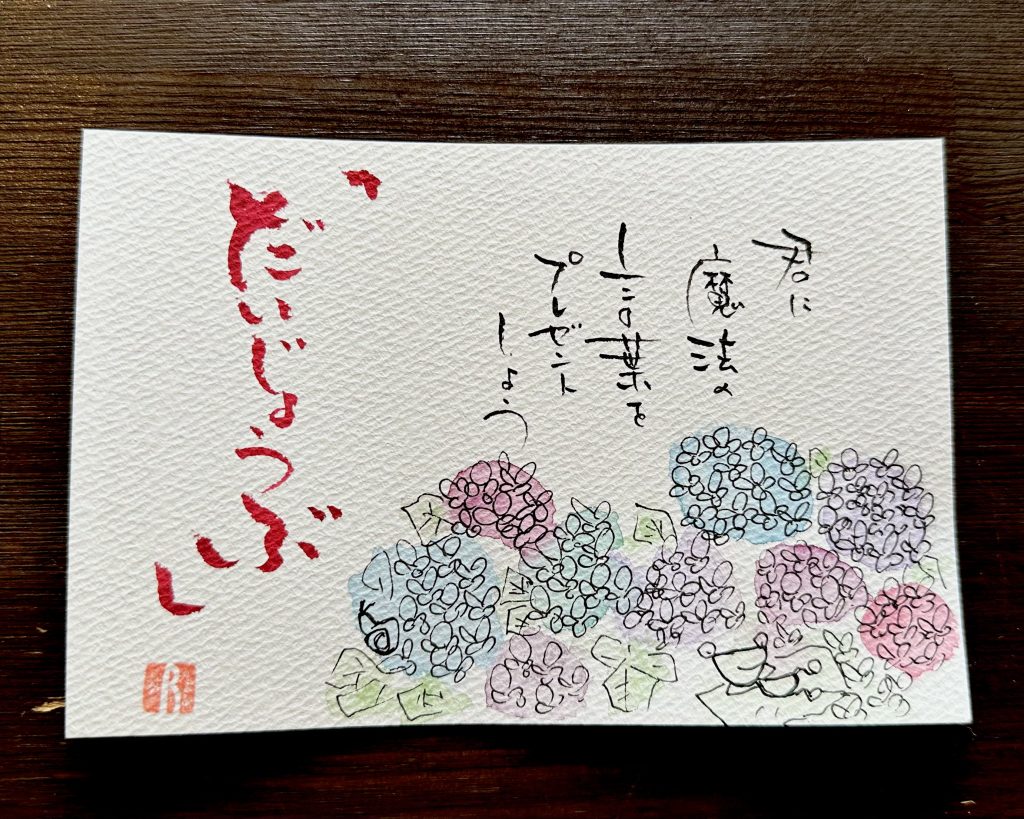 君に
魔法の
言葉を
プレゼント
しよう
「だいじょうぶ」
R